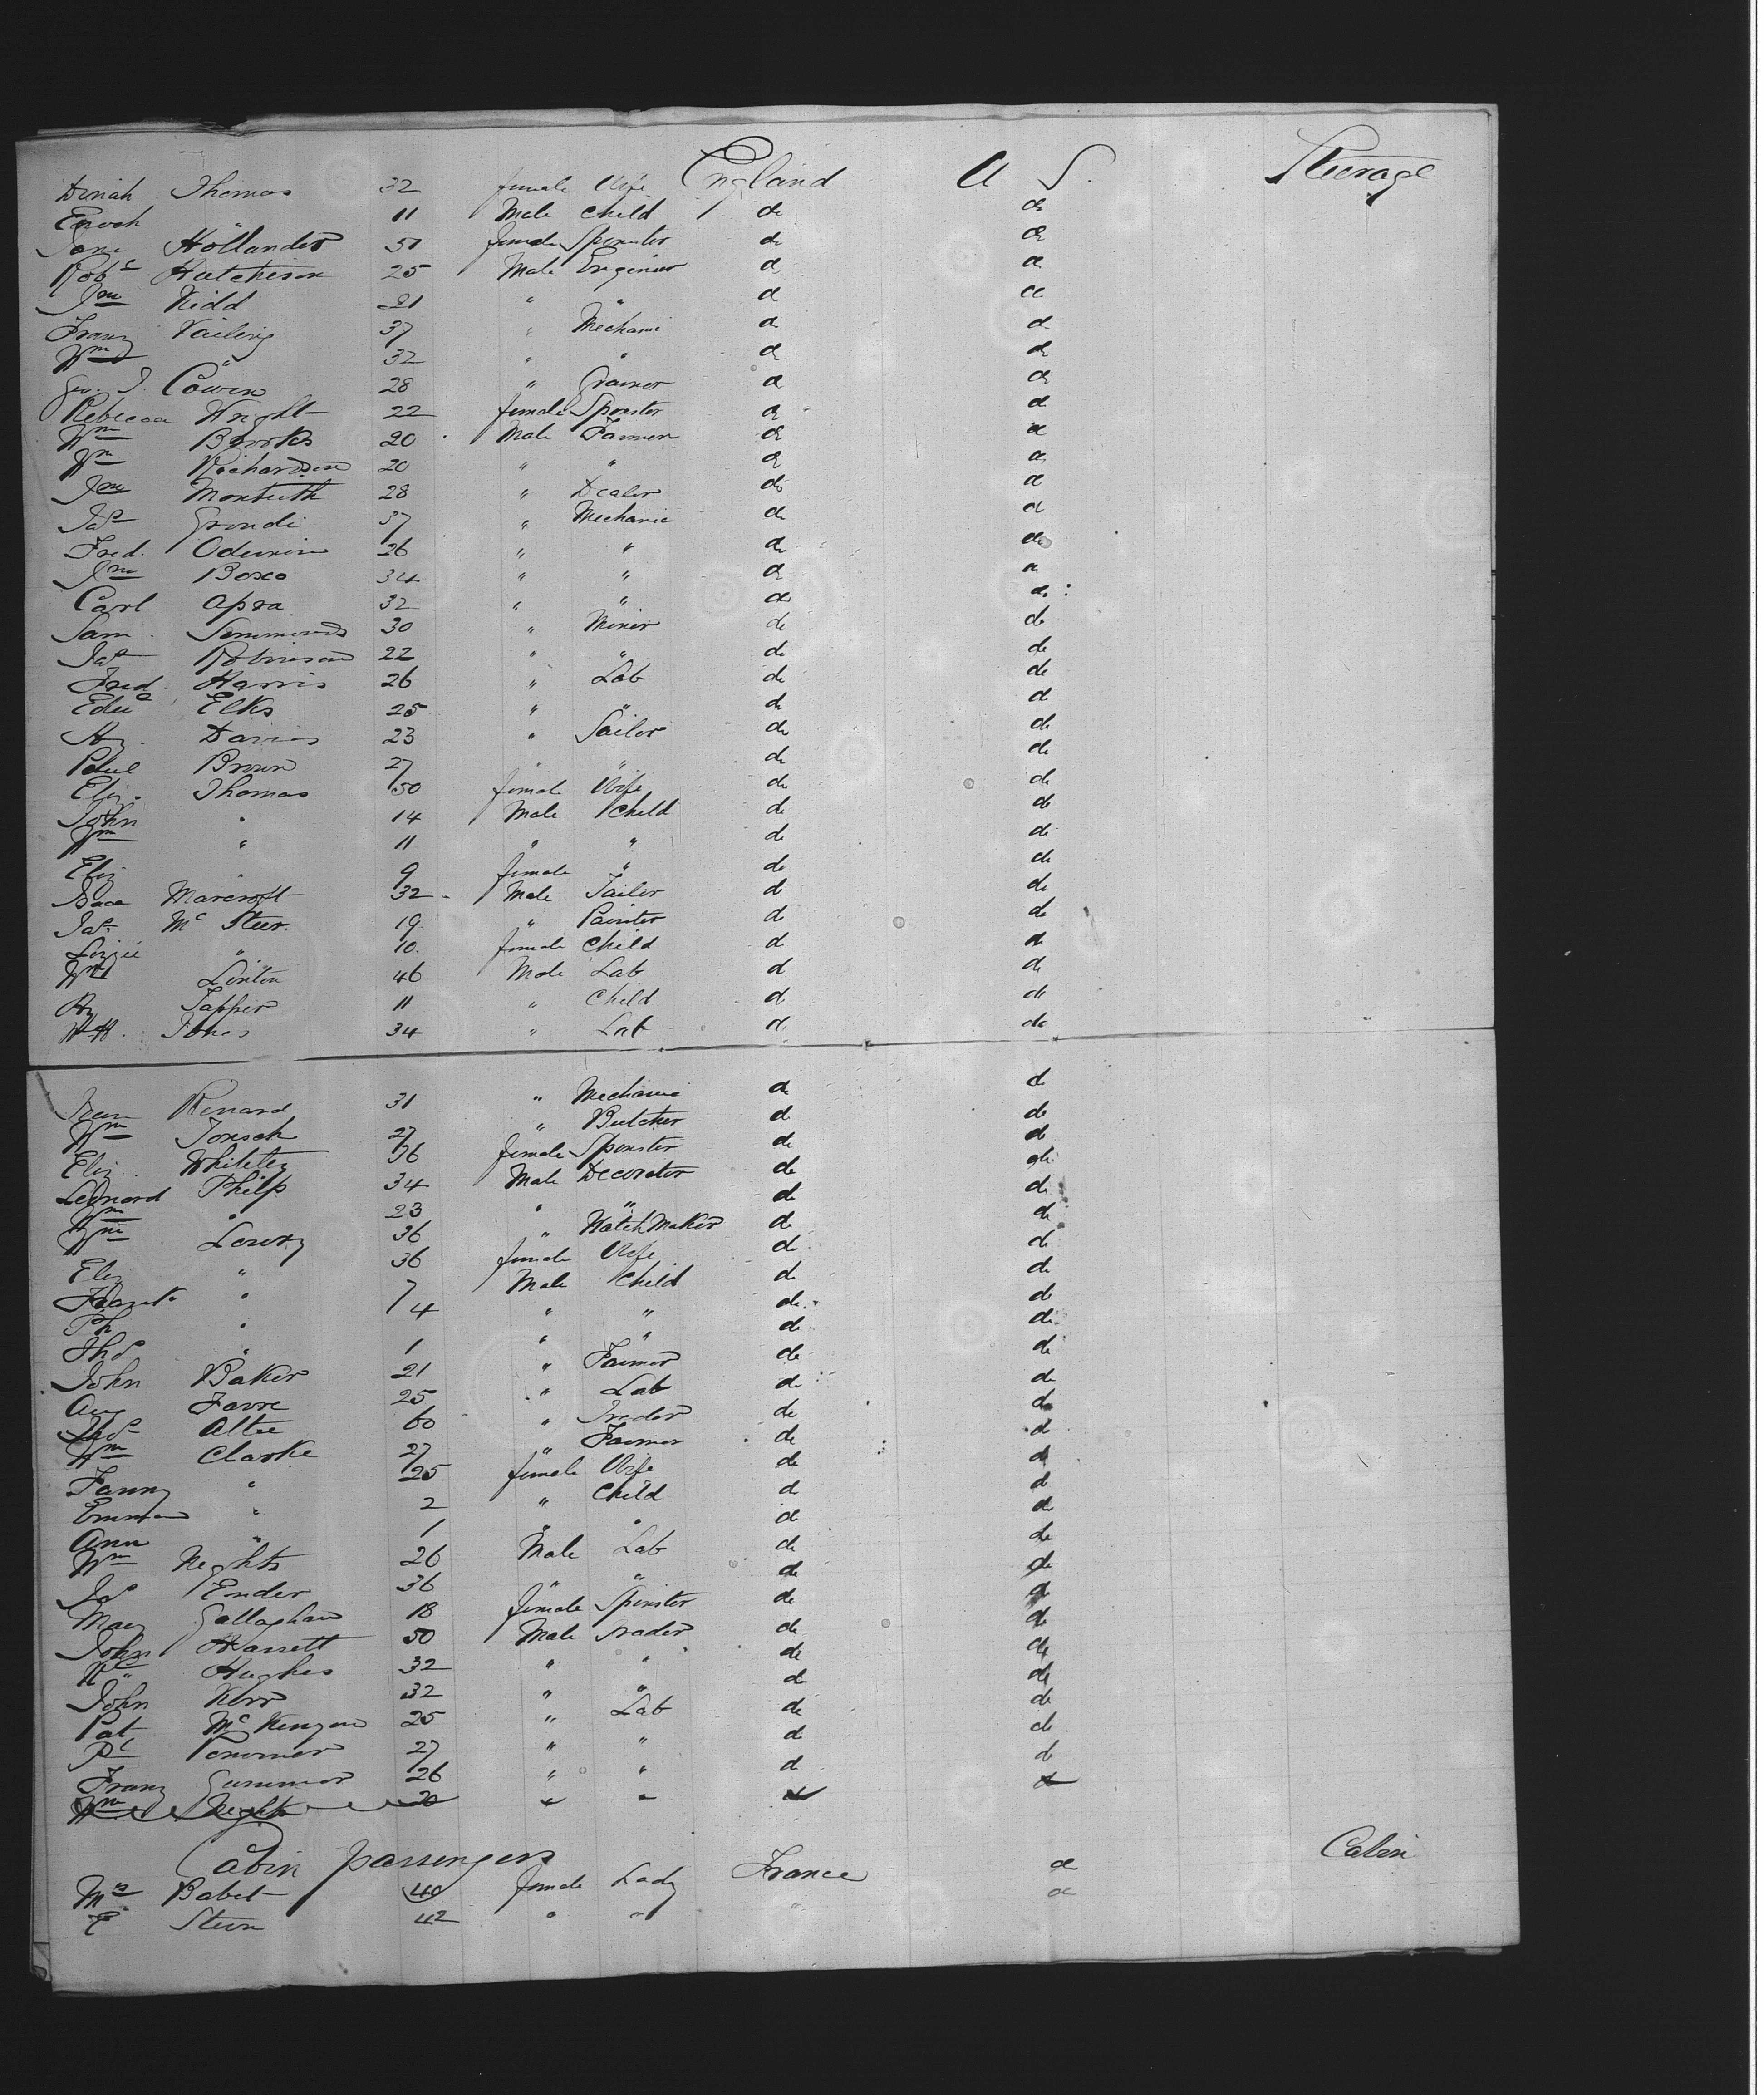 Dinah Thomas 32 female Wife England U S. Steerage
Enoch " 11 Male Child do do
Jane Hollander 50 female Spinster do do
Robt Hutchison 25 Male Engineer do do
Jno Kidd 21 " " do do
Franz Vailing 37 " Mechanic do do
Wm " 32 " " do do
Geo. J. Cowen 28 " Grainer do do
Rebecca Wright 22 female Spinster do do
Wm Brooks 20 Male Farmer do do
Wm Richardson 20 " " do do
Jno Monteith 28 " Dealer do do
Jas Grondi 37 " Mechanic do do
Fred. Oderim 26 " " do do
Jno Boxo 34 " " do do
Carl Apra 32 " " do do
Sam. Simmonds 30 " Miner do do
Jas Robinson 22 " " do do
Fred. Harris 26 " Lab do do
Edwd Elks 25 " " do do
Hy. Davies 23 " Sailor do do
Brown 27 " " do do
Eliz. Thomas 50 female Wife do do
John " 14 Male Child do do
Wm " 11 " " do do
Eliz " 9 female " do do
Isaac Marcroft 32 Male Tailor do do
Jas. Mc Steer. 19 " Painter do do
Lizzie " 10. female Child do do
Wm Linton 46 Male Lab do do
Hy Tapper 11 " Child do do
W H. Jones 34 " Lab do do
Jean Renard 31 " Mechanic do do
Wm Tonsch 27 " Butcher do do
Eliz Whiteley 36 female Spinster do do
Leonard Philp 34 Male Decorator do do
Wm " 23 " " do do
Wm Lowry 36 " Watch Maker do do
Eliz " 36 female Wife do do
Frank " 7 Male Child do do
Ph " 4 " " do do
Thos " 1 " " do do
John Baker 21 " Farmer do do
Aug Favre 25 " Lab do do
Thos Altee 60 " Trader do do
Wm Clarke 27 " Farmer do do
Fanny " 25 female Wife do do
Emma " 2 " Child do do
Ann " 1 " " do do
Wm Neghts 26 Male Lab do do
Jas Ender 36 " " do do
Mary Gallaghan 18 female Spinster do do
John Hassett 50 Male Trader do do
Hughes 32 " " do do
John Kerr 32 " " do do
Pat McKenzon 25 " Lab do do
Pt Pommer 27 " " do do
Franz Gummer 26 " " do do
Wm Neght 20 " " do do
Cabin passengers Cabin
Mrs Babet 40 female Lady France do
E Stern 42 " " " do